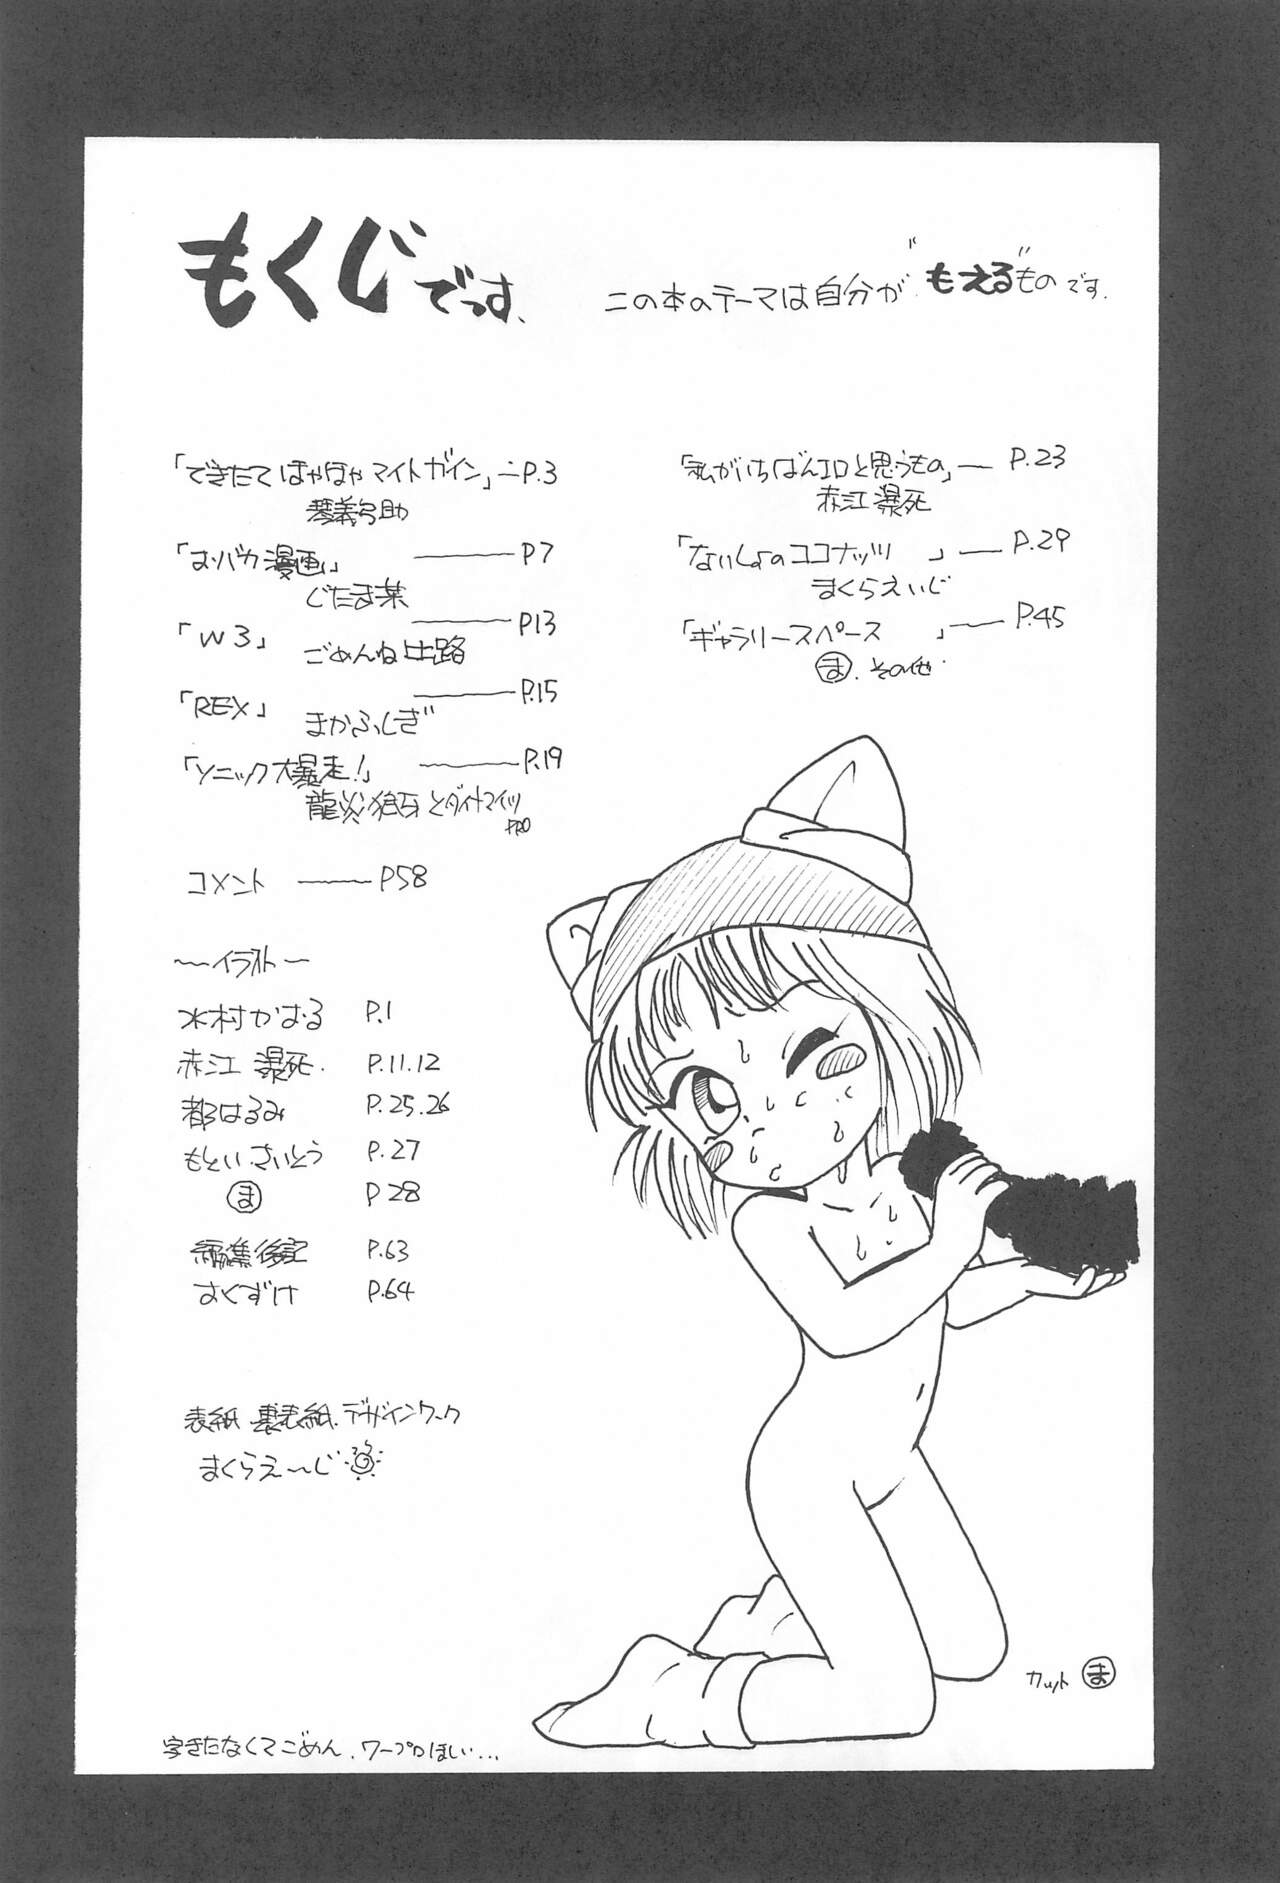 もくじでっす、
この本のテーマは自分が"もえる"ものです.
「できたて ほやほや マイトガイン」 P.3
琴義弓助
「お・バカ漫画」 P7
じたま某
「W3」 P13
ごめんね出路
「REX」 P.15
まかふしぎ
「ソニック大暴走!」 P.19
龍炎狼牙とダイナマイツ
PRO
コメント P58
「私がいちばんエロと思うもの」 P.23
赤江 瀑死
「ないしょのココナッツ」 P.29
まくらえいじ
「ギャラリースペース」 P.45
ま. その他.
〜イラスト〜
水村かおる P.1
赤江 瀑死. P.11.12
都はるみ P.25.26
もといさいとう P.27
ま P28
編集後記 P.63
おくずけ P.64
表紙 裏表紙.デザインワーク
まくらえ〜じ
カット ま
字きたなくてごめん.ワープロほしい...